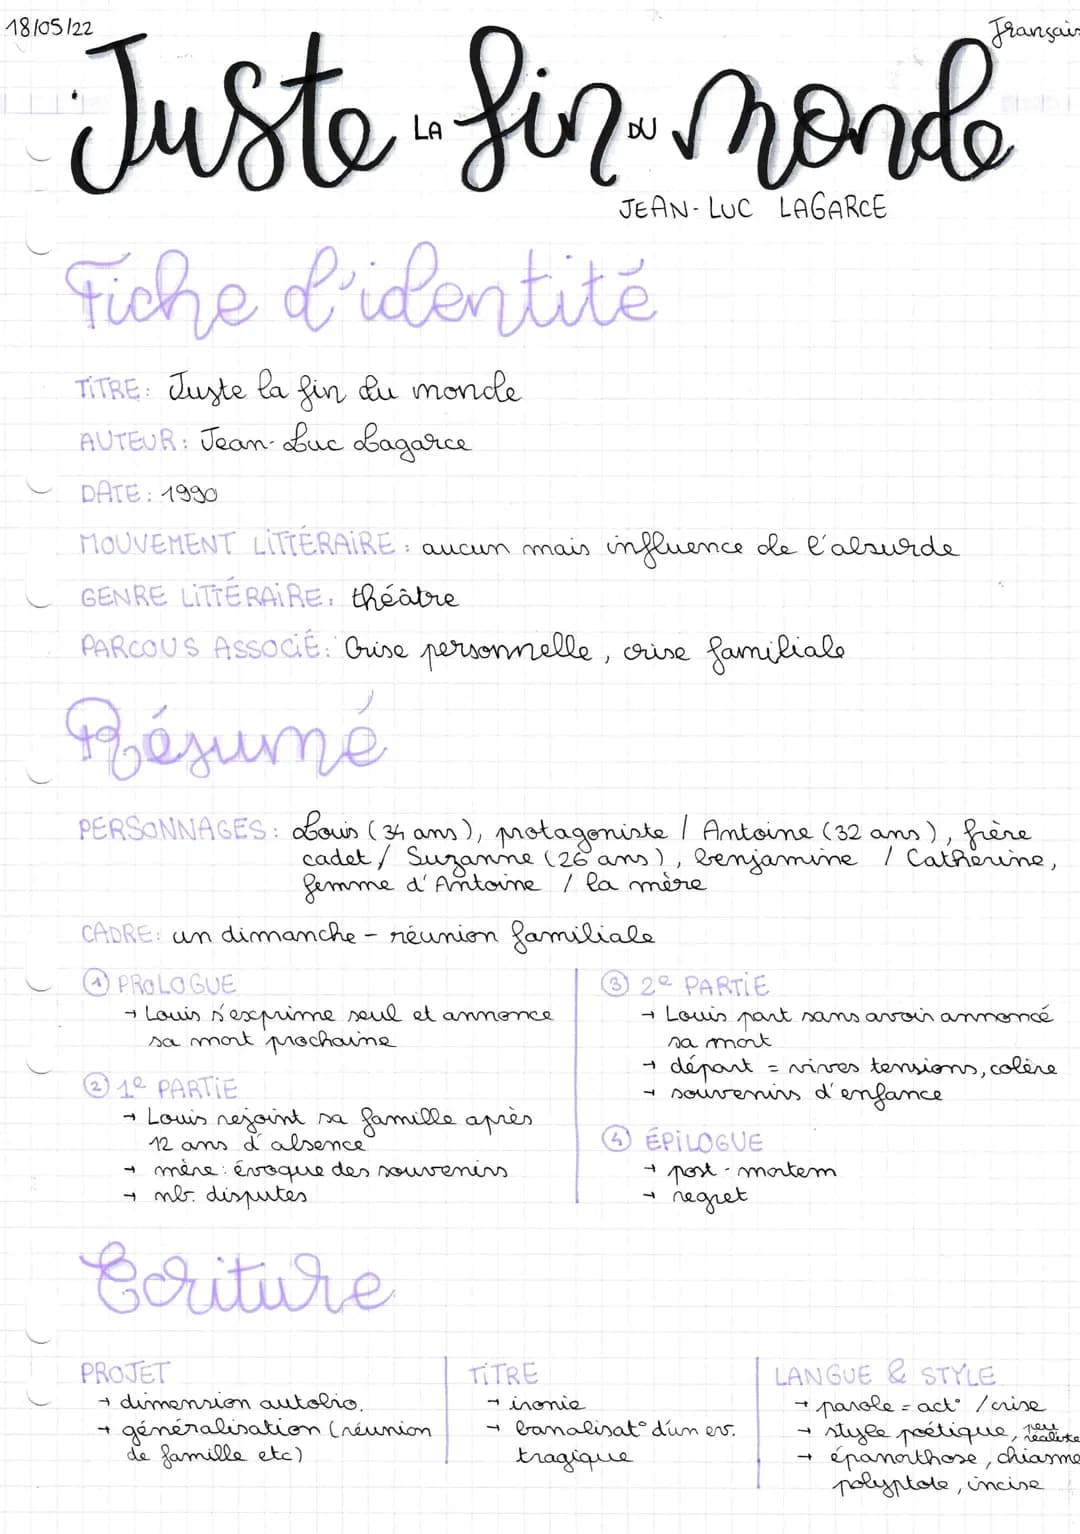 18/05/22
Français
Juste LA fin DU Monde
JEAN-LUC LAGARCE
Fiche d'identité
TITRE: Juste la fin du monde
AUTEUR: Jean-Luc Lagarce
DATE: 1990
MOUVEMENT LITTÉRAIRE: aucun mais influence de l'absurde
GENRE LITTÉRAIRE: théâtre
PARCOUS ASSOCIÉ: Crise personnelle, crise familiale
Résumé
PERSONNAGES: Louis (34 ans), protagoniste / Antoine (32 ans), frère
cadet / Suzanne (26 ans), benjamine / Catherine,
femme d'Antoine / la mère
CADRE: un dimanche - réunion familiale
① PROLOGUE
→ Louis s'exprime seul et annonce
sa mort prochaine
② 1e PARTIE
→ Louis rejoint sa famille après
12 ans d'absence
→ mère: évoque des souvenirs
→ nb. disputes
③ 2e PARTIE
→ Louis part sans avoir annoncé
sa mort
→ départ = vives tensions, colère
→ souvenirs d'enfance
④ ÉPILOGUE
→ post-mortem
→ regret
Ecriture
PROJET
→ dimension autobio.
→ généralisation (réunion
de famille etc)
TITRE
→ ironie
→ banalisat° d'un ev.
tragique
LANGUE & STYLE
→ parole = act° / crise
→ style poétique, peu réaliste
→ épanorthose, chiasme
polyptote, incise